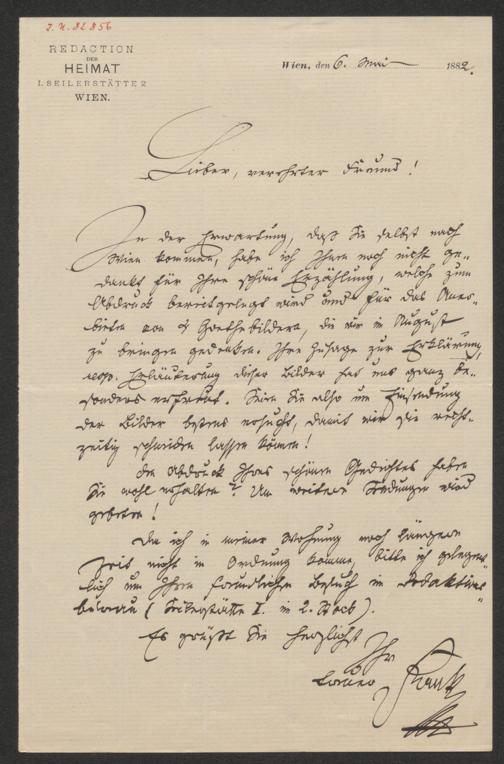 J. N. 82856
REDACTION
DER
HEIMAT
I. SEILERSTÄTTE 2
WIEN.
Wien, den 6. Mai 1882.
Lieber, verehrter Freund!
In der Erwartung, daß Sie selbst nach
Wien kommen, habe ich Ihnen noch nicht ge-
dankt für Ihre schöne Erzählung, welche zum
Abdruck bereitgelegt wird und für das Aner-
bieten von 4 Goethebildern, die wir im August
zu bringen gedenken. Ihre Zusage zur Erklärung,
resp. Erläuterung dieser Bilder hat uns ganz be-
sonders erfreut. Seien Sie also um Einsendung
der Bilder bestens ersucht, damit wir sie recht-
zeitig schneiden lassen können!
Den Abdruck Ihres schönen Gedichtes haben
Sie wohl erhalten? Um weitere Sendungen wird
gebeten!
Da ich in meiner Wohnung noch längere
Zeit nicht in Ordnung komme, bitte ich gelegent-
lich um Ihren freundlichen Besuch im Redaktions-
bureau (Seilerstätte I. in 2. Stock).
Es grüßt Sie herzlichst Ihr
Rank